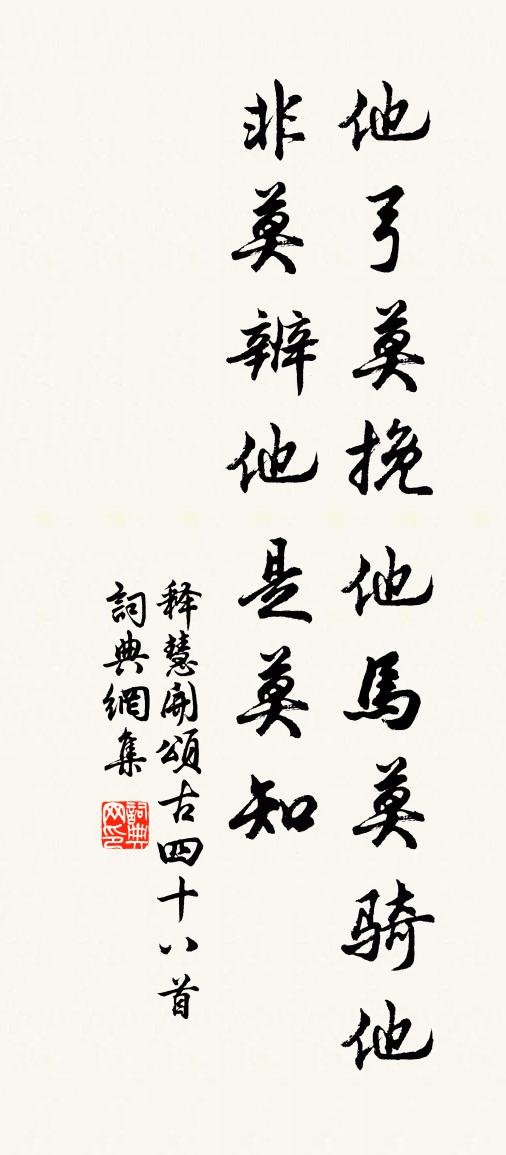 他弓莫挽他馬莫騎他
非莫辨他是莫知
释慧開頌古四十八首
詞典網集
詞典网印